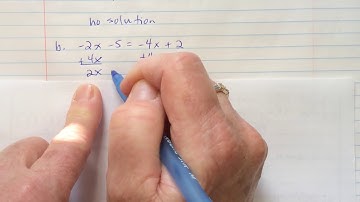 no solution
b. -2x -5 = -4x + 2
+4x +4
2x